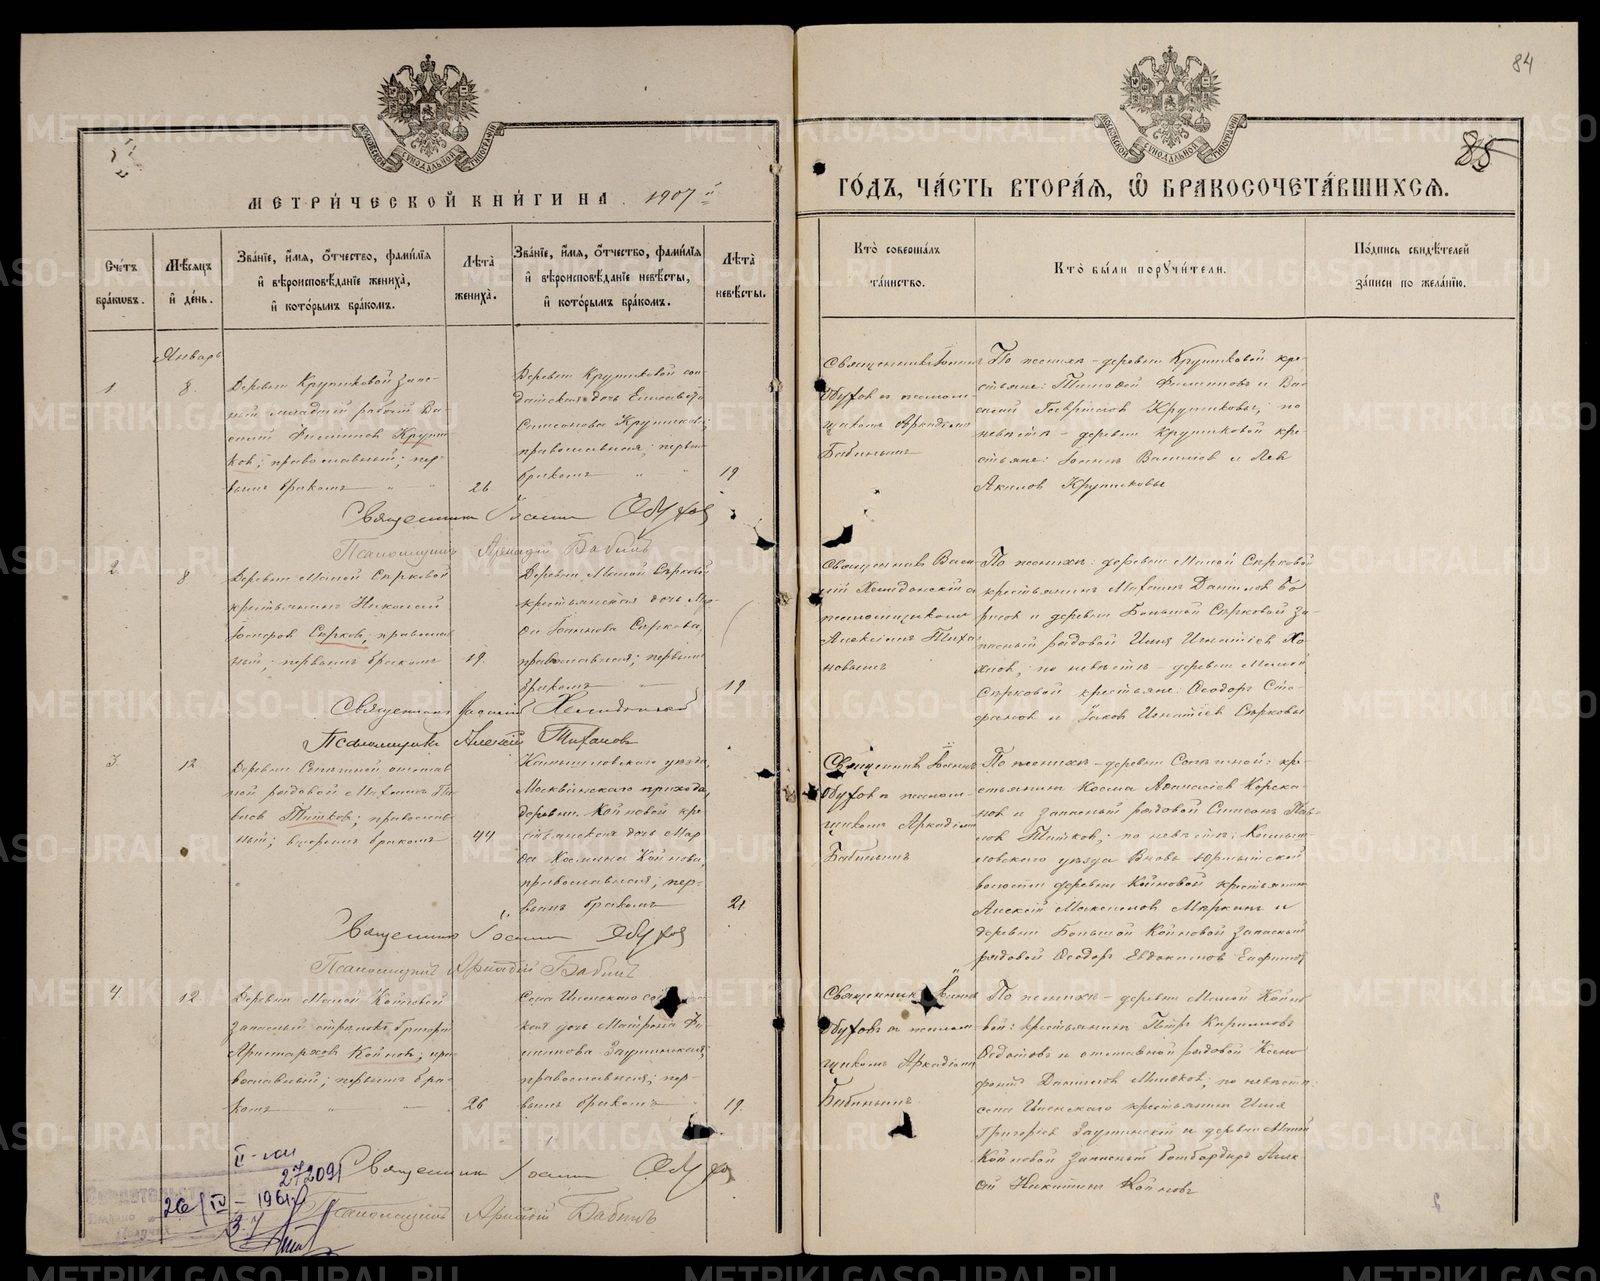 84
85
МЕТРИ́ЧЕСКОЙ КНИ́ГИ НА 1907 й
ГО́ДЪ, ЧА́СТЬ ВТОРА́Я, Ѽ БРАКОСОЧЕТА́ВШИХСѦ.
Сче́тъ бра́кѡвъ.
Мѣ́сяцъ и҆ де́нь.
Зва́нїе, и҆́мя, ѻ҆́тчество, фами́лїя и҆ вѣроисповѣ́данїе жениха̀, и҆ кото́рымъ бра́комъ.
Лѣ́та̀ жениха̀.
Зва́нїе, и҆́мя, ѻ҆́тчество, фами́лїя и҆ вѣроисповѣ́данїе невѣ́сты, и҆ кото́рымъ бра́комъ.
Лѣ́та̀ невѣ́сты.
Кто̀ соверша́лъ та́инство.
Кто̀ бы́ли поручи́тели.
По́дпись свидѣ́телей за́писи по жела́нїю.
Январь
1
8.
Деревни Крутиковой запа-
сный младшій
Ва-
силій Филиповъ Крути-
ковъ; православный; пер-
вымъ бракомъ
26
Деревни Крутиковой сол-
датская дочь Елисавета
Симеонова Крутикова;
православная; первымъ
бракомъ
19
Священникъ Іоаннъ
Обуховъ съ псалом-
щикомъ Аркадіемъ
Бабинымъ
По женихѣ – деревни Крутиковой кре-
стьяне: Тимофей Филиповъ и Ва-
силій Гавріиловъ Крутиковы; по
невѣстѣ – деревни Крутиковой кре-
стьяне: Іоаннъ Василіевъ и Левъ
Акиловъ Крутиковы
Священникъ Іоаннъ Обуховъ
Псаломщикъ Аркадій Бабинъ
2.
8
Деревни Малой Сѣрковой
крестьянинъ Николай
Сѣрковъ; православ-
ный; первымъ бракомъ
19.
Деревни Малой Сѣрковой
крестьянская дочь Мар-
ѳа Іоаннова Сѣркова;
православная; первымъ
бракомъ
19
Священникъ Васи-
лій Хелидонскій съ
псаломщикомъ
Алексіемъ Тиха-
новымъ
По женихѣ: деревни Малой Сѣрковой
крестьянинъ Михаилъ Даниловъ Бо-
рисовъ и деревни Большой Сѣрковой за-
пасный рядовой Илія Игнатіевъ
по невѣстѣ – деревни Малой
Сѣрковой крестьяне: Ѳеодоръ Сте-
фановъ и Іаковъ Игнатіевъ Сѣрковы
Священникъ Василій Хелидонскій
Псаломщикъ Алексій Тихановъ
3.
12
Деревни отстав-
ной рядовой Михаилъ Па-
вловъ Титковъ; православ-
ный; вторымъ бракомъ
44
Камышловскаго уѣзда,
прихода,
деревни Койновой кре-
стьянская дочь Мар-
ѳа Космина Койнова;
православная; пер-
вымъ бракомъ
21.
Священникъ Іоаннъ
Обуховъ съ псалом-
щикомъ Аркадіемъ
Бабинымъ
По женихѣ – деревни кре-
стьянинъ Косма Аѳанасіевъ
и запасный рядовой Симеонъ Пав-
ловъ Титковъ; по невѣстѣ: Камыш-
ловскаго уѣзда Вновь Юрмытской
волости деревни Койновой крестьянинъ
Алексій Максимовъ и
деревни Большой Койновой запасный
рядовой Ѳеодоръ Евдокимовъ
Священникъ Іоаннъ Обуховъ
Псаломщикъ Аркадій Бабинъ
4.
12.
Деревни Малой Койновой
запасный стрѣлокъ Григорій
Аристарховъ Койновъ; пра-
вославный; первымъ бра-
комъ
26
Села дочь Матрона Фи-
липова
православная; пер-
вымъ бракомъ
19.
Священникъ Іоаннъ
Обуховъ съ псалом-
щикомъ Аркадіемъ
Бабинымъ.
По женихѣ – деревни Малой Койно-
вой: крестьянинъ Петръ Кирилловъ
Ѳедотовъ и отставной рядовой Ксено-
фонтъ Даниловъ по невѣстѣ:
села крестьянинъ Илія
Григоріевъ и деревни Малой
Койновой запасный бомбардиръ Алек-
сій Никитинъ Койновъ
Священникъ Іоаннъ Обуховъ
Псаломщикъ Аркадій Бабинъ
272091
26/IV – 1961
METRIKI.GASO-URAL.RU